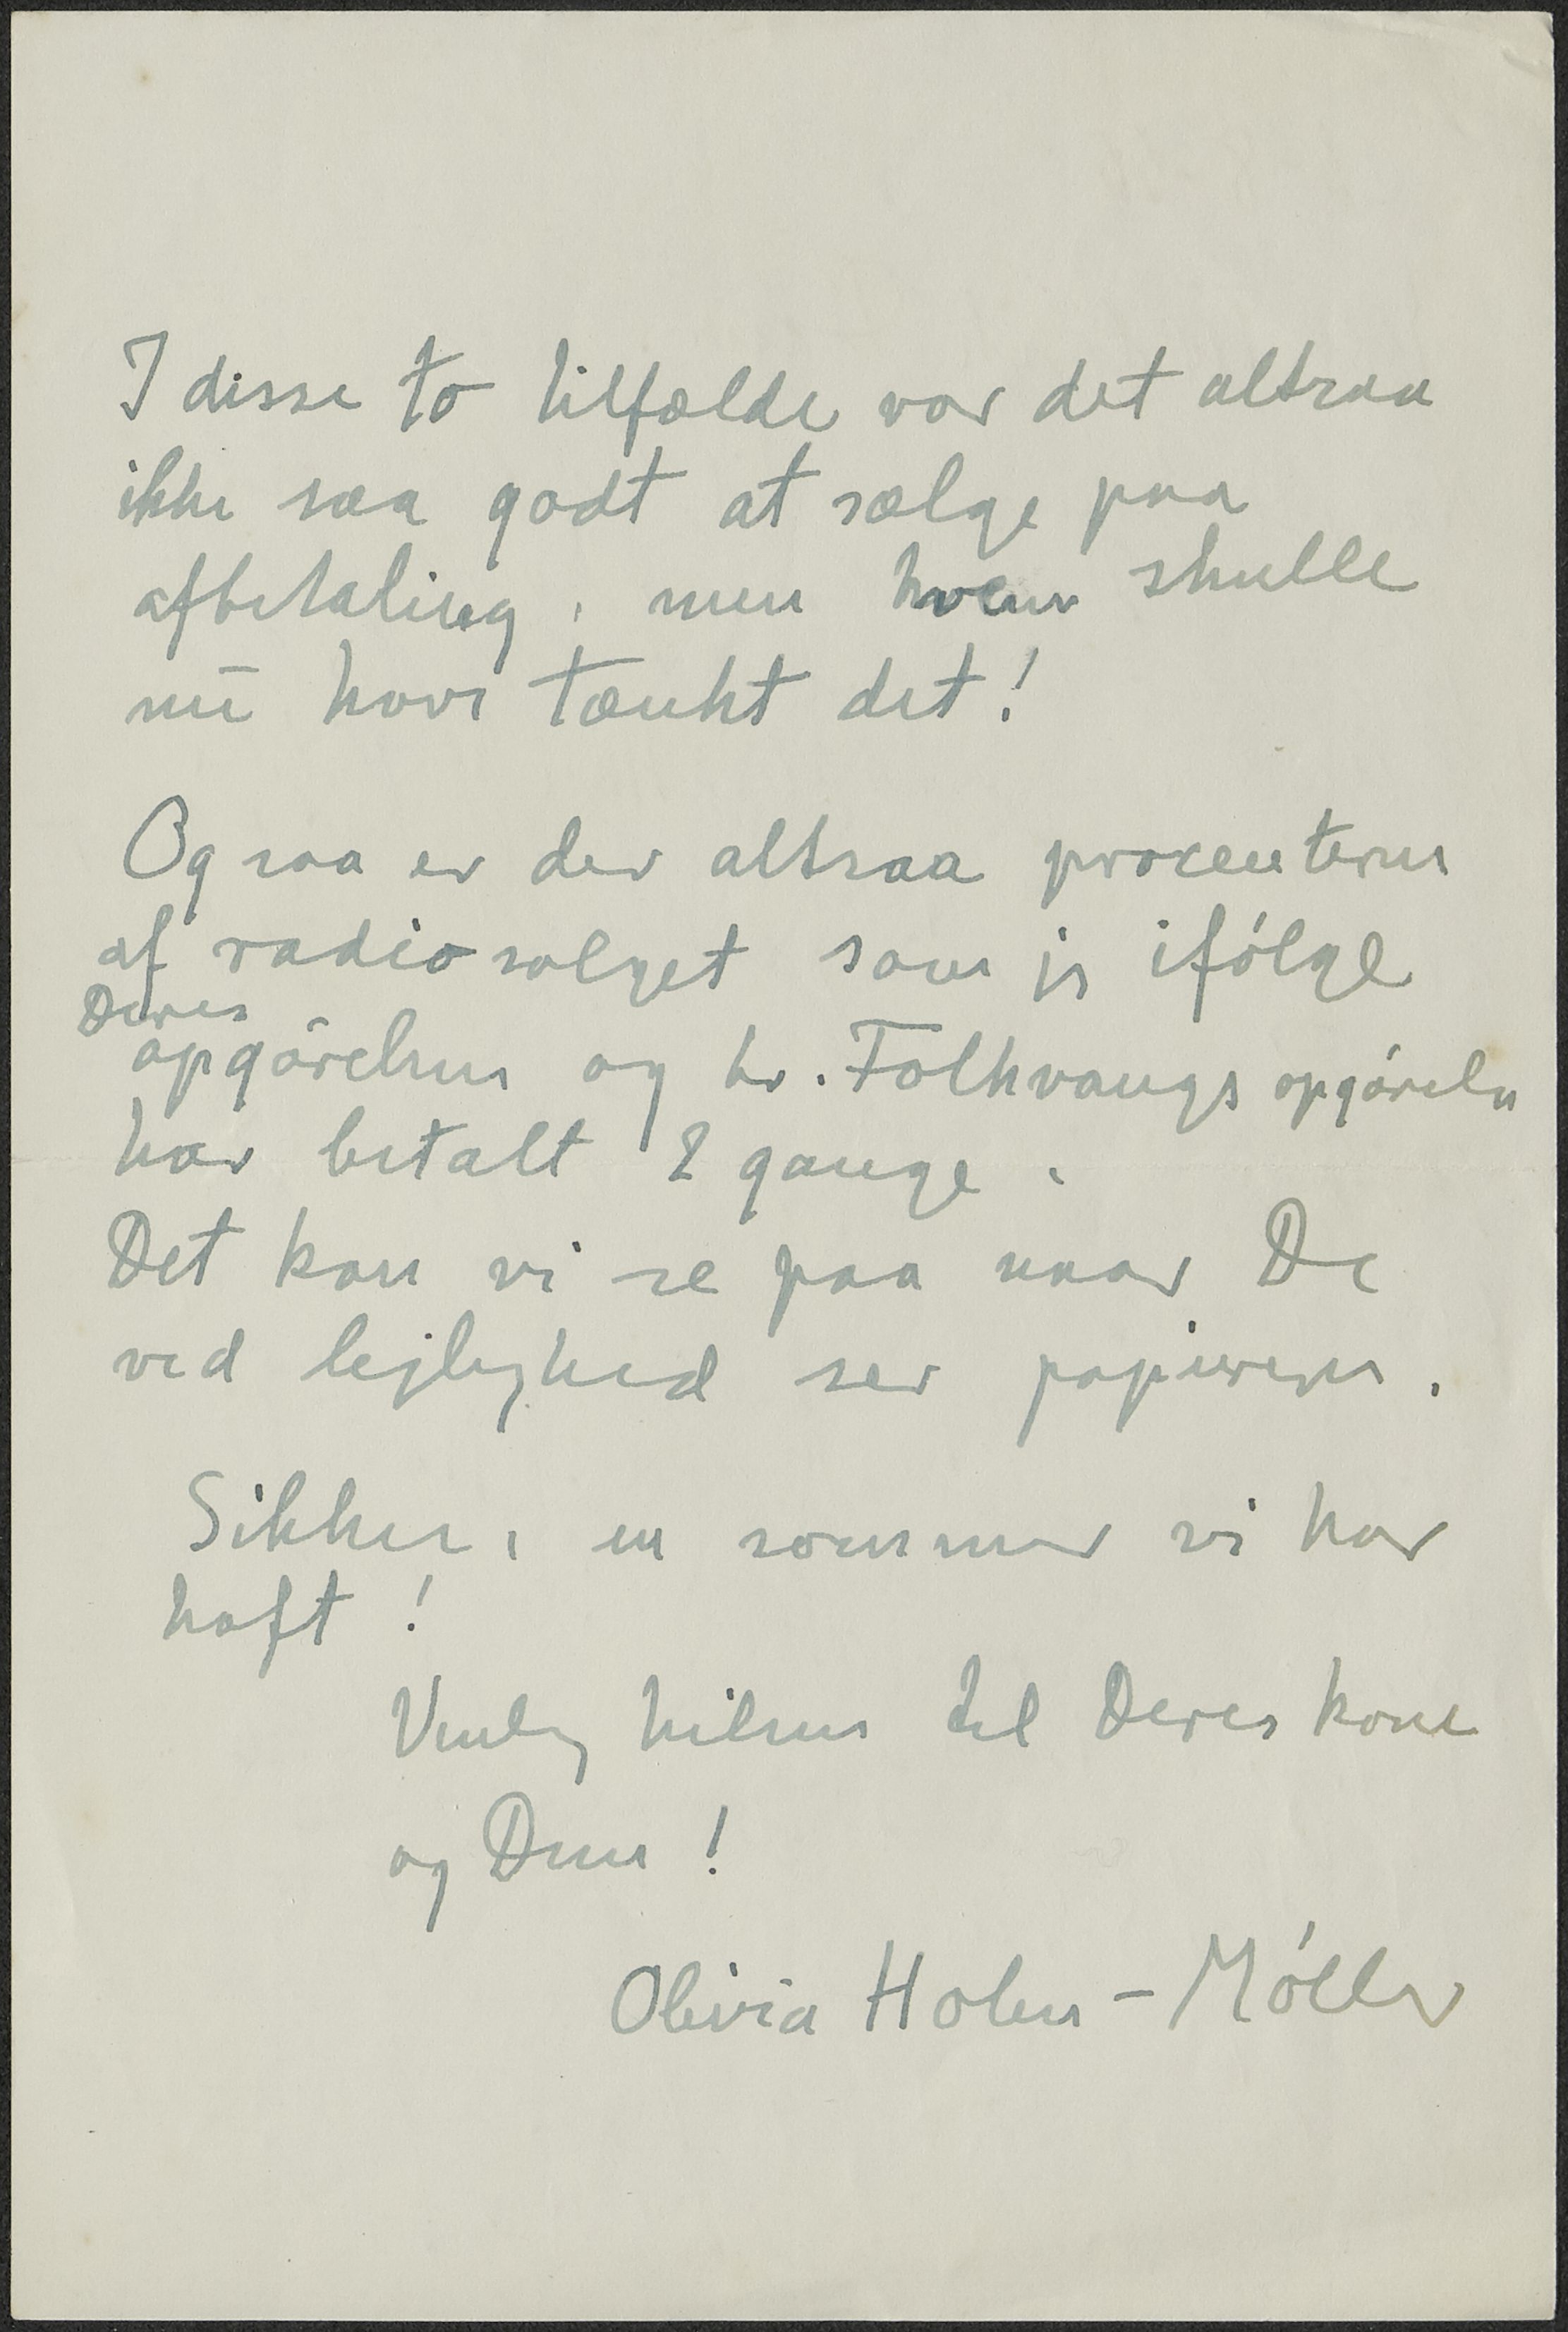 I disse to tilfælde var det altsaa
ikke saa godt at sælge paa
afbetaling, men hvem skulle
nu have tænkt det!
Og saa er der altsaa procenterne
af radiosalget som jeg ifölge
Deres
opgörelse og hr. Folkvangs opgörelse
har betalt 2 gange.
Det kan vi se paa naar De
ved lejlighed ser papirerne.
Sikken, en sommer vi har
haft!
Venlig hilsen til Deres kone
og Dem!
Olivia Holm-Möller